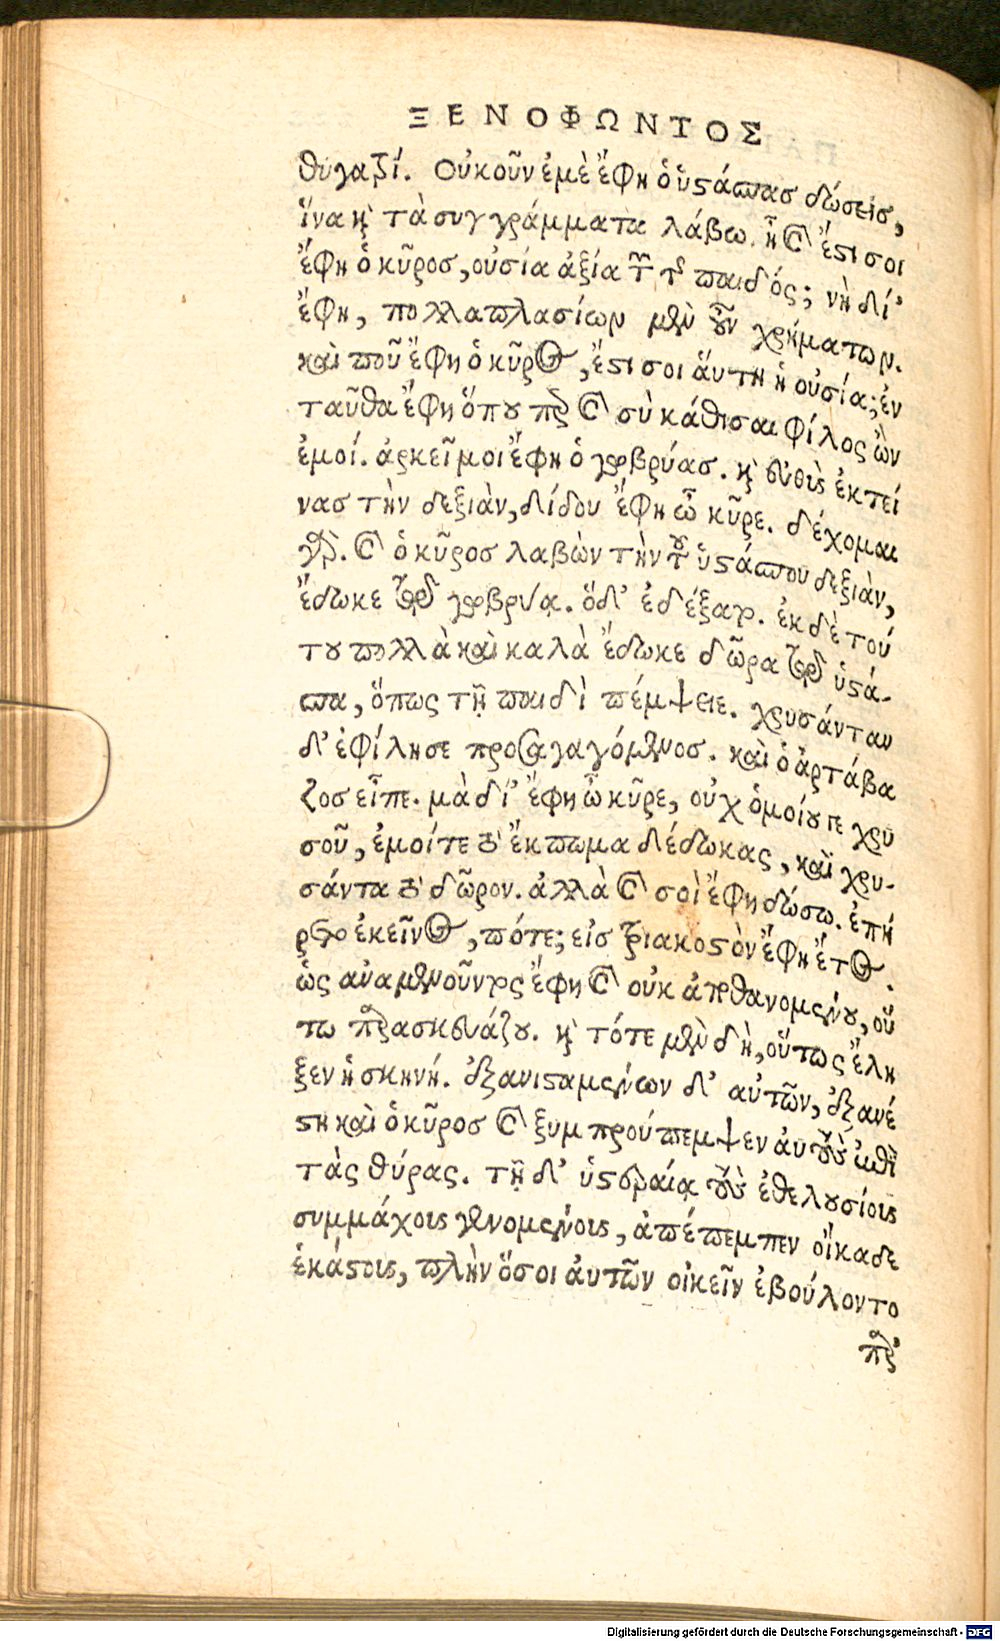 ΞΕΝΟΦΩΝΤΟΣ
θυγατρί. Οὐκοῦν ἐμὲ ἔφη ὁ ὑστάσπας δώσεις,
ἵνα καὶ τὰ συγγράμματα λάβω. ἦ καὶ ἔστι σοι
ἔφη ὁ κῦρος, οὐσία ἀξία τῶν τῆς παιδός; νὴ δί’
ἔφη, πολλαπλασίων μὲν οὖν χρήματων.
καὶ ποῦ ἔφη ὁ κῦρος, ἔστι σοι ἅυτη ἡ οὐσία; ἐν
ταῦθα ἔφη ὅπου περ καὶ σὺ κάθισαι φίλος ὢν
ἐμοί. ἀρκεῖ μοι ἔφη ὁ γωβρύας. καὶ εὐθὺς ἐκτεί
νας τὴν δεξιὰν, δίδου ἔφη ὦ κῦρε. δέχομαι
γάρ. καὶ ὁ κῦρος λαβὼν τὴν τοῦ ὑστάσπου δεξιὰν,
ἔδωκε τῷ γωβρύᾳ. ὅδ’ ἐδέξατο. ἐκ δὲ τού
του πολλὰ καὶ καλὰ ἔδωκε δῶρα τῷ ὑστά-
σπα, ὅπως τῇ παιδὶ πέμψειε. χρυσάνταν
δ’ ἐφίλησε προσαγαγόμενος. καὶ ὁ ἀρτάβα
ζος εἶπε. μὰ δί’ ἔφη ὦ κῦρε, οὐχ ὁμοίου γε χρυ
σοῦ, ἐμοίτε τὸ ἔκπωμα δέδωκας, καὶ χρυ-
σάντα τὸ δῶρον. ἀλλὰ καὶ σοὶ ἔφη δώσω. ἐπή
ρετο ἐκεῖνος, πότε; εἰς τριακοστὸν ἔφη ἔτος.
ὡς αὐαμενοῦντος ἔφη καὶ οὐκ ἀποθανομένου, οὕ
τω παρασκευάζου. καὶ τότε μὲν δὴ, οὕτως ἔλη
ξεν ἡ σκηνή. ἐξανισταμένων δ’ αὐτῶν, ἐξανέ
στη καὶ ὁ κῦρος καὶ ξυμπρούπεμψεν ἀυτοὺς ἐπὶ
τὰς θύρας. τῇ δ’ ὑστεραίᾳ τοὺς ἐθελουσίους
συμμάχους γενομένους, ἀπέπεμπεν οἴκαδε
ἑκάστους, πλὴν ὅσοι ἀυτῶν οἰκεῖν ἐβούλοντο
παρ’
Digitalisierung gefördert durch die Deutsche Forschungsgemeinschaft - DFG